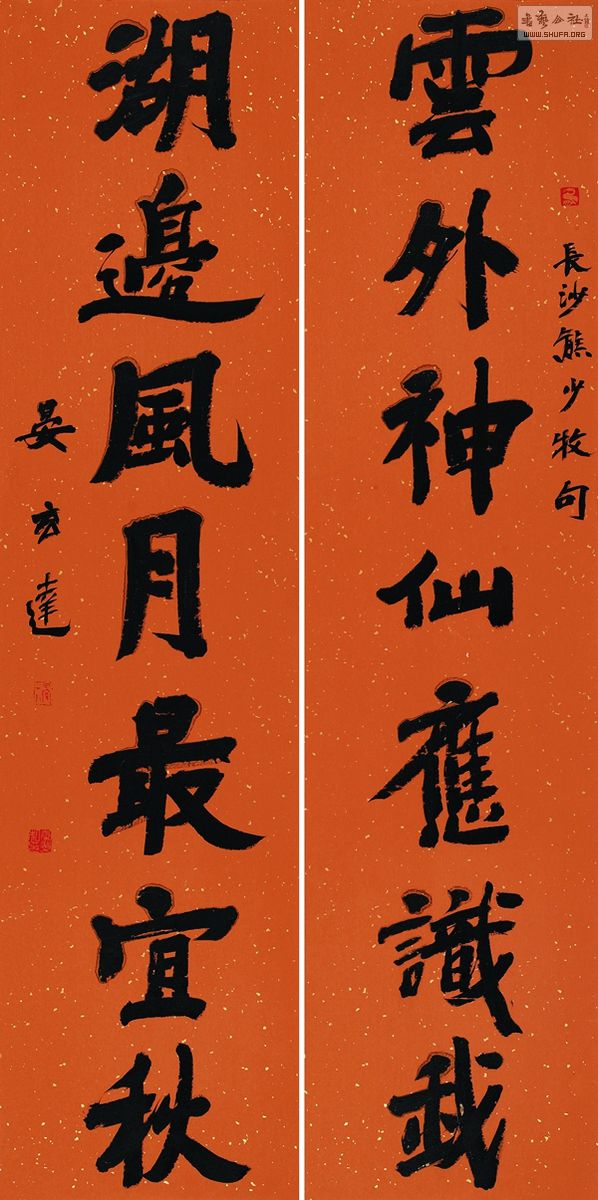 書藝公社
WWW.SHUFA.ORG
長沙熊少牧句
雲外神仙應識我
湖邊風月最宜秋
晏達